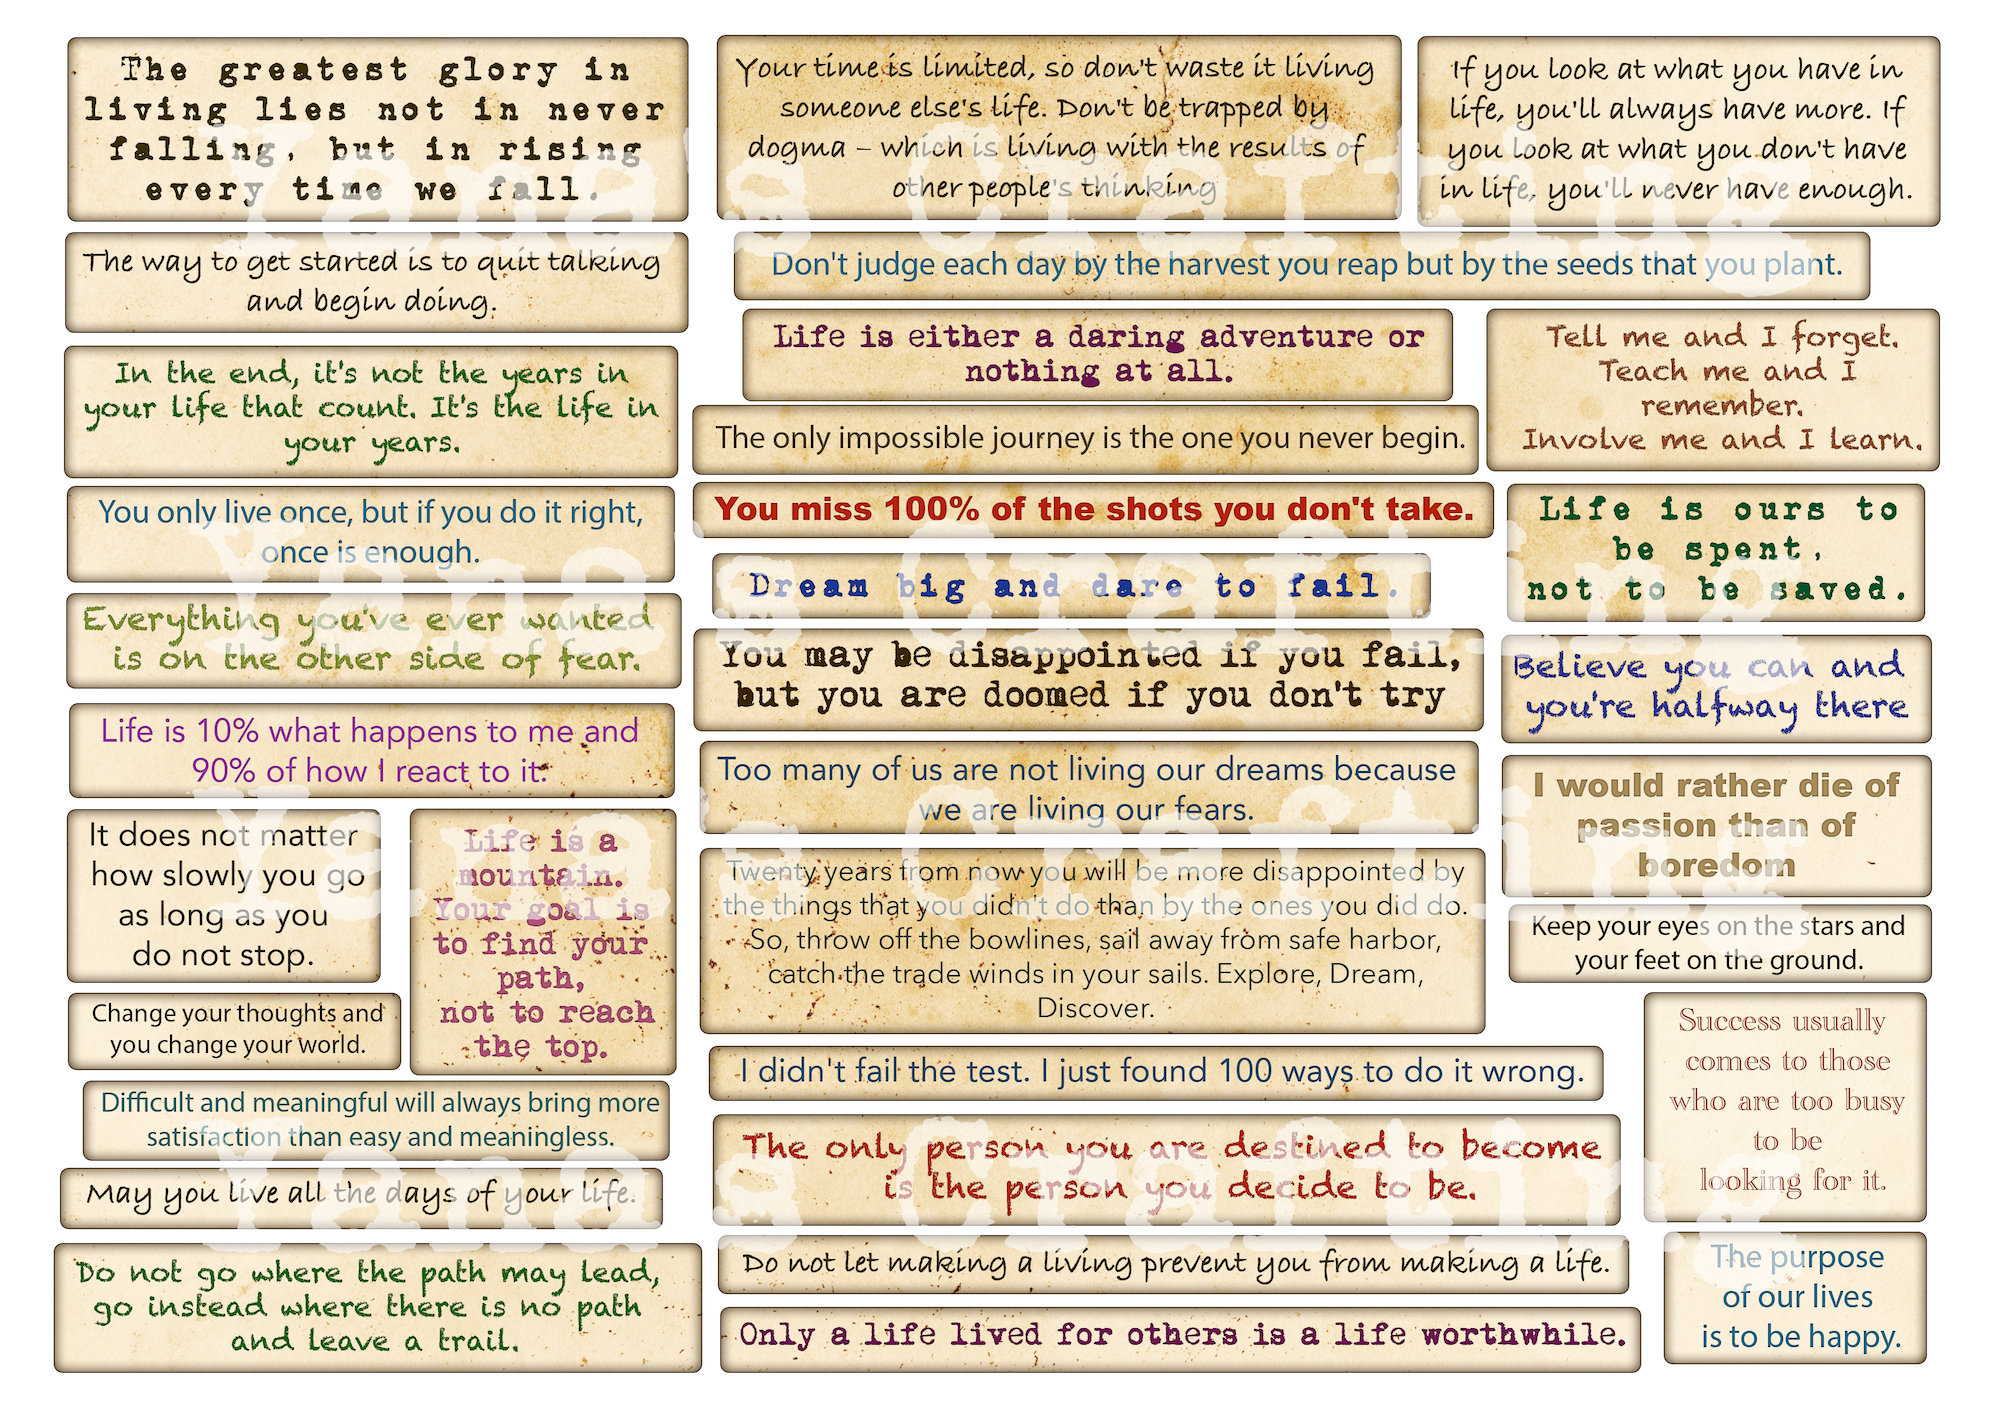 The greatest glory in
living lies not in never
falling, but in rising
every time we fall.
Your time is limited, so don't waste it living
someone else's life. Don't be trapped by
dogma – which is living with the results of
other people's thinking
If you look at what you have in
life, you'll always have more. If
you look at what you don't have
in life, you'll never have enough.
The way to get started is to quit talking
and begin doing.
Don't judge each day by the harvest you reap but by the seeds that you plant.
In the end, it's not the years in
your life that count. It's the life in
your years.
Life is either a daring adventure or
nothing at all.
Tell me and I forget.
Teach me and I
remember.
Involve me and I learn.
The only impossible journey is the one you never begin.
You only live once, but if you do it right,
once is enough.
You miss 100% of the shots you don't take.
Life is ours to
be spent,
not to be saved.
Dream big and dare to fail.
Everything you've ever wanted
is on the other side of fear.
You may be disappointed if you fail,
but you are doomed if you don't try
Believe you can and
you're halfway there
Life is 10% what happens to me and
90% of how I react to it.
Too many of us are not living our dreams because
we are living our fears.
I would rather die of
passion than of
boredom
It does not matter
how slowly you go
as long as you
do not stop.
Life is a
mountain.
Your goal is
to find your
path,
not to reach
the top.
Twenty years from now you will be more disappointed by
the things that you didn't do than by the ones you did do.
So, throw off the bowlines, sail away from safe harbor,
catch the trade winds in your sails. Explore, Dream,
Discover.
Keep your eyes on the stars and
your feet on the ground.
Change your thoughts and
you change your world.
Success usually
comes to those
who are too busy
to be
looking for it.
I didn't fail the test. I just found 100 ways to do it wrong.
Difficult and meaningful will always bring more
satisfaction than easy and meaningless.
The only person you are destined to become
is the person you decide to be.
May you live all the days of your life.
Do not go where the path may lead,
go instead where there is no path
and leave a trail.
Do not let making a living prevent you from making a life.
The purpose
of our lives
is to be happy.
Only a life lived for others is a life worthwhile.
Yana's Crafting
Yana's Crafting
Yana's Crafting
Yana's Crafting